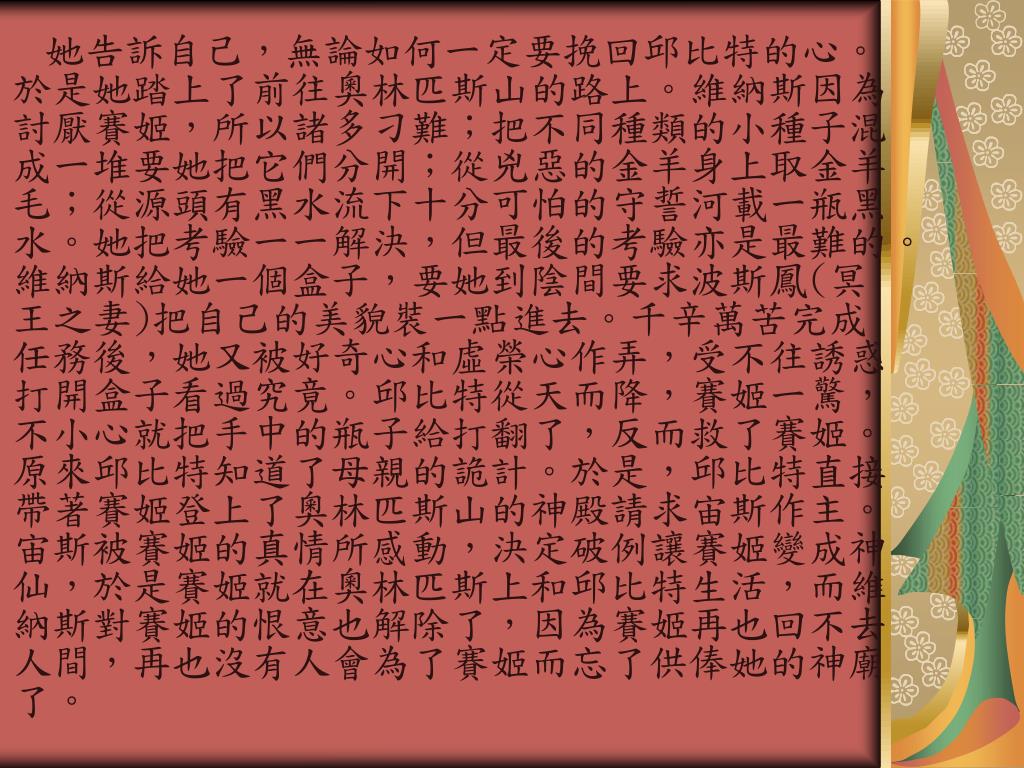 她告訴自己，無論如何一定要挽回邱比特的心。
於是她踏上了前往奧林匹斯山的路上。維納斯因為
討厭賽姬，所以諸多刁難；把不同種類的小種子混
成一堆要她把它們分開；從兇惡的金羊身上取金羊
毛；從源頭有黑水流下十分可怕的守誓河載一瓶黑
水。她把考驗一一解決，但最後的考驗亦是最難的。
維納斯給她一個盒子，要她到陰間要求波斯鳳(冥
王之妻)把自己的美貌裝一點進去。千辛萬苦完成
任務後，她又被好奇心和虛榮心作弄，受不往誘惑
打開盒子看過究竟。邱比特從天而降，賽姬一驚，
不小心就把手中的瓶子給打翻了，反而救了賽姬。
原來邱比特知道了母親的詭計。於是，邱比特直接
帶著賽姬登上了奧林匹斯山的神殿請求宙斯作主。
宙斯被賽姬的真情所感動，決定破例讓賽姬變成神
仙，於是賽姬就在奧林匹斯上和邱比特生活，而維
納斯對賽姬的恨意也解除了，因為賽姬再也回不去
人間，再也沒有人會為了賽姬而忘了供俸她的神廟
了。